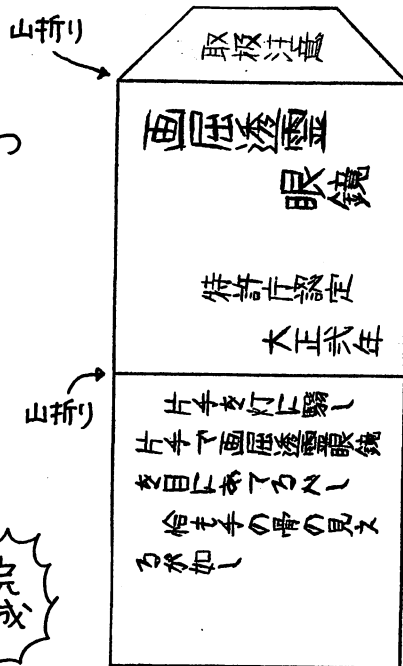 山折り
取扱注意
画屈透霊
眼鏡
特許庁認定
大正弐年
山折り
片手を灯に翳し
片手で画屈透霊眼鏡
を目にあてるべし
恰も手の骨の見え
るが如し
完成